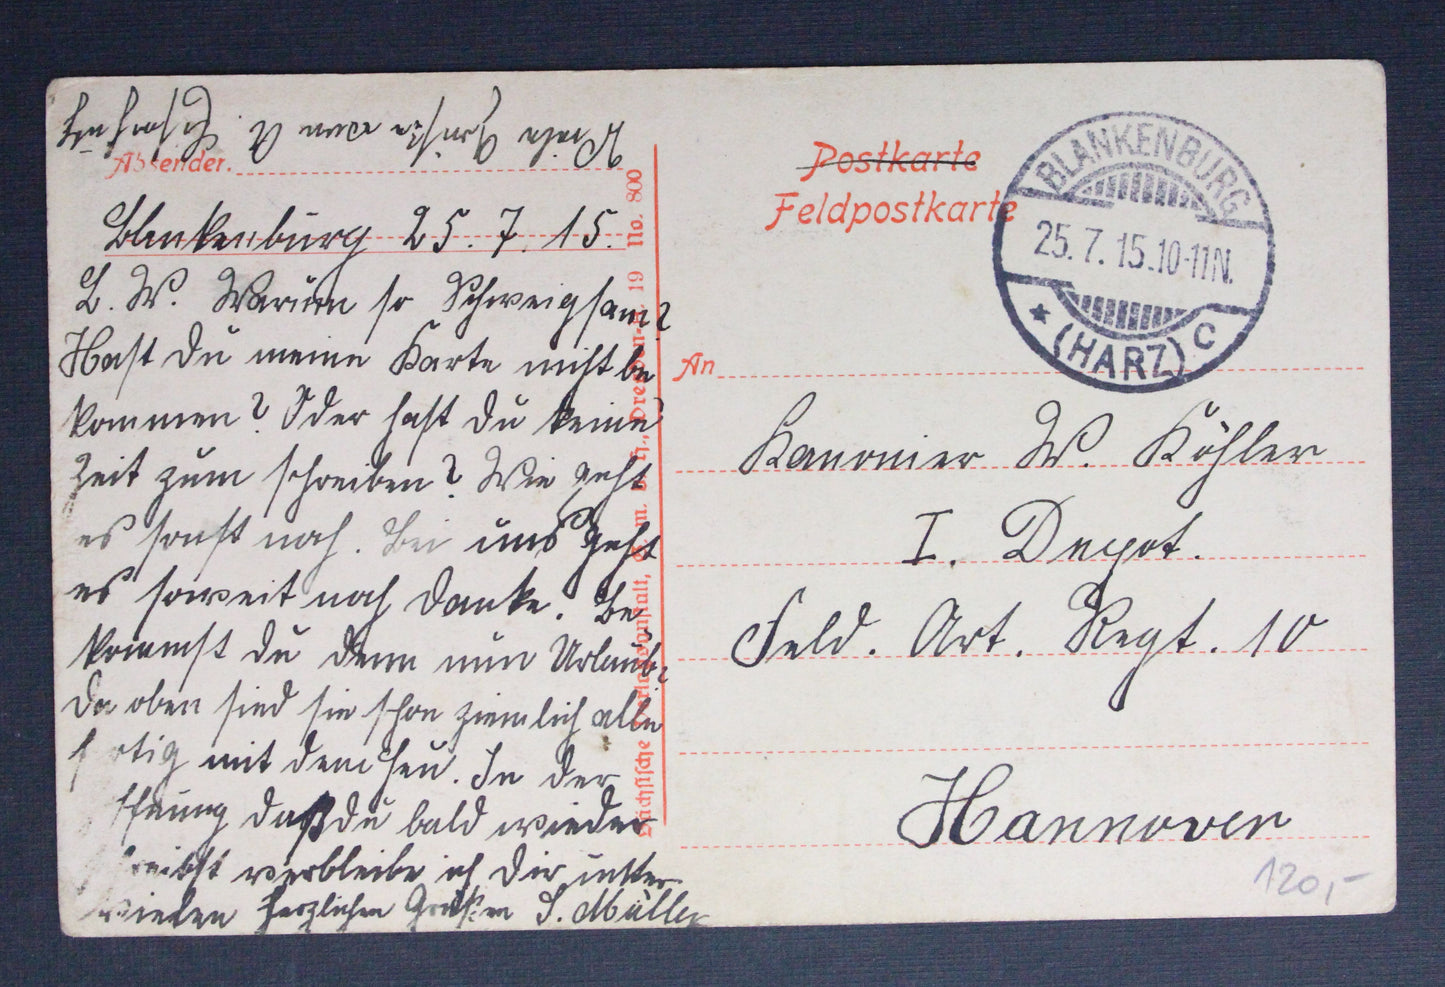 Absender.
Blankenburg 25. 7. 15.
L. W. Warum so Schweigsam?
Hast du meine Karte nicht be
kommen? Oder hast du keine
Zeit zum schreiben? Wie geht
es sonst noch. Bei uns geht
es soweit noch danke. Be
kommst du denn nun Urlaub?
Da oben sind sie schon ziemlich alle
fertig mit dem heu. In der
offnung daß du bald wieder
schreibst verbleibe ich dir unter
vielen herzlichen Grüßen S. Müller
Sächsische Verlagsanstalt, G. m. b. H., Dresden-A. 19 No. 800
Postkarte
Feldpostkarte
BLANKENBURG
25. 7. 15. 10-11 N.
* (HARZ) C
An
Kanonier W. Köhler
I. Depot.
Feld. Art. Regt. 10
Hannover
120,-